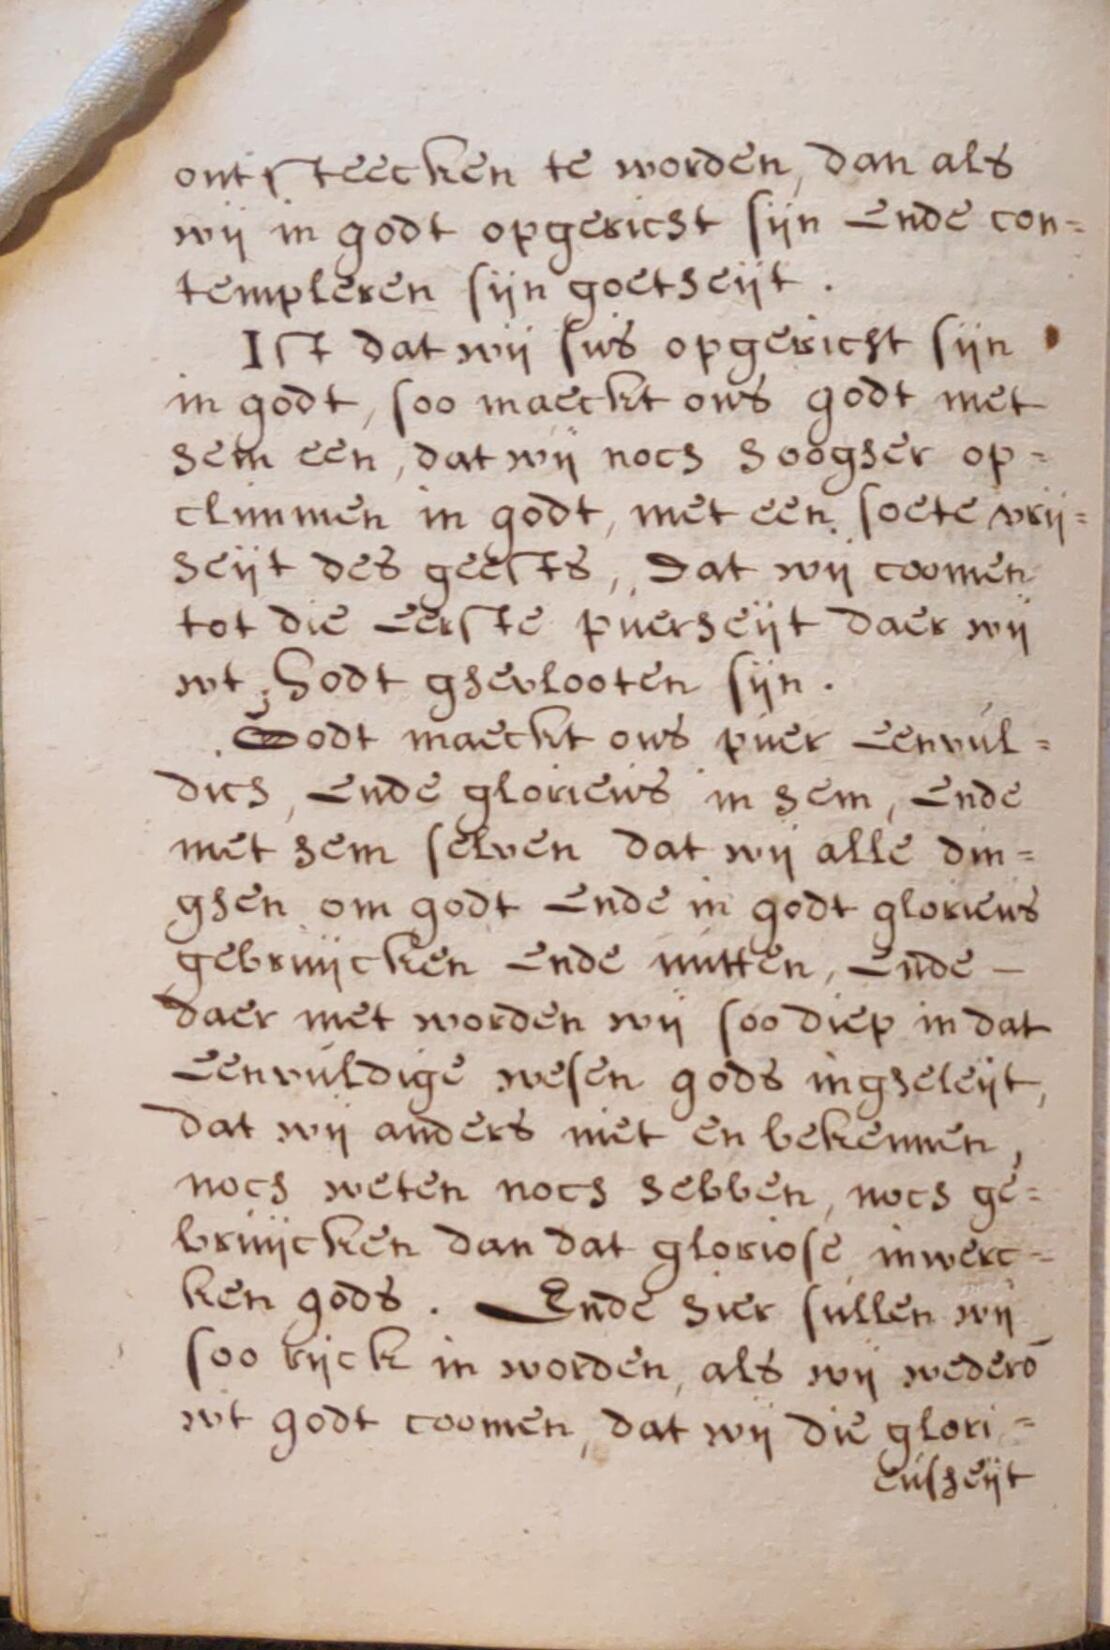 ontsteecken te worden, dan als
wij in godt opgericht sijn Ende con=
templeren sijn goetheijt.
Ist dat wij sus opgericht sijn
in godt, soo maeckt ons godt met
hem een, dat wij noch hoogher op=
climmen in godt, met een soete vrij=
heijt des geests, Dat wij coomen
tot die Eerste puerheijt daer wij
wt Godt ghevlooten sijn.
Godt maeckt ons puer Eenvul=
dich, Ende glorieus in hem, Ende
met hem selven dat wij alle din=
ghen om godt Ende in godt glorieus
gebruijcken Ende nutten, Ende —
daer met worden wij soo diep in dat
Eenvuldige wesen gods ingheleijt,
dat wij anders niet en bekennen,
noch weten noch hebben, noch ge=
bruijcken dan dat gloriose inwerc=
ken gods. Ende hier sullen wij
soo rijck in worden, als wij wederō
wt godt coomen, dat wij die glori=
eusheijt